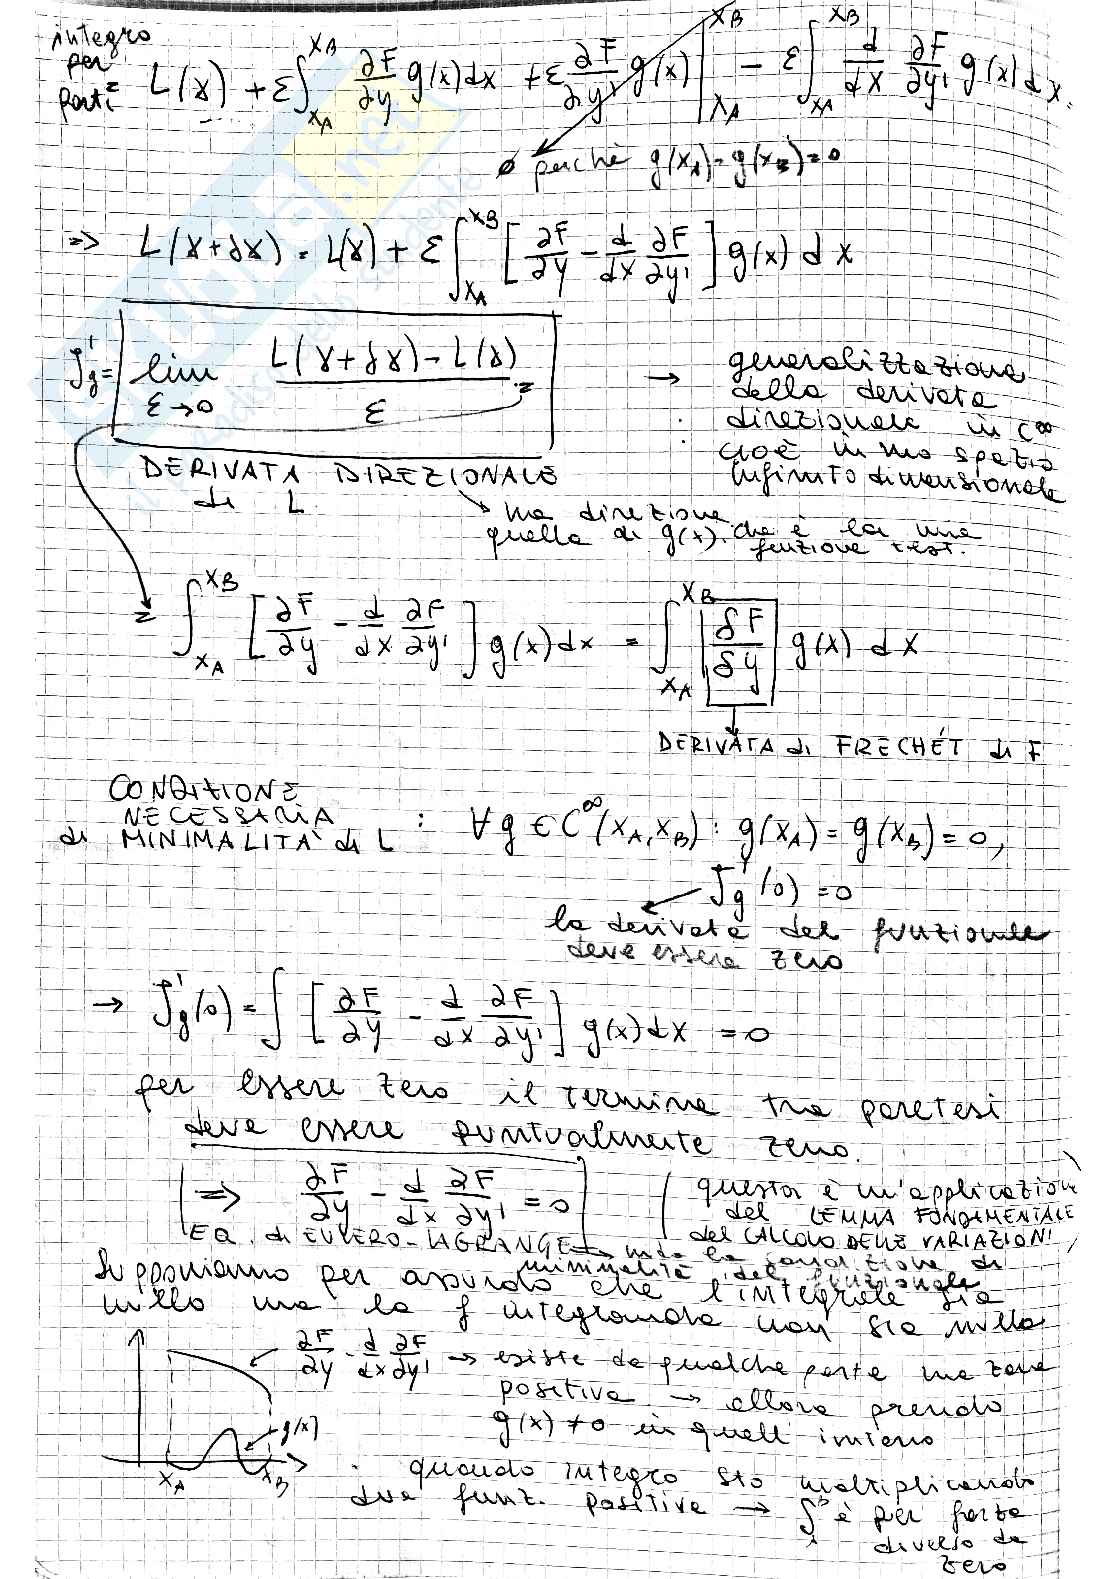 integro
per
parti = L(γ) + ε∫_{x_A}^{x_B} ∂F/∂y g(x)dx + ε ∂F/∂y' g(x) |_{x_A}^{x_B} - ε∫_{x_A}^{x_B} d/dx ∂F/∂y' g(x)dx.
ø perché g(x_A)=g(x_B)=0
=> L(γ+δγ) = L(γ) + ε∫_{x_A}^{x_B} [∂F/∂y - d/dx ∂F/∂y'] g(x) dx
J'_g = lim_{ε→0} L(γ+δγ) - L(γ) / ε =
→ generalizzazione
della derivata
direzionale in C^∞
cioè in uno spazio
infinito dimensionale
DERIVATA DIREZIONALE
di L
→ una direzione
quella di g(x), che è la mia
funzione test.
= ∫_{x_A}^{x_B} [∂F/∂y - d/dx ∂F/∂y'] g(x)dx = ∫_{x_A}^{x_B} δF/δy g(x) dx
DERIVATA di FRECHÉT di F
CONDIZIONE
NECESSARIA
di MINIMALITÀ di L : ∀g∈C^∞(x_A,x_B) : g(x_A) = g(x_B) = 0,
J'_g(0) = 0
la derivata del funzionale
deve essere zero
→ J'_g(0) = ∫ [∂F/∂y - d/dx ∂F/∂y'] g(x)dx = 0
per essere zero il termine tra paretesi
deve essere puntualmente zero.
=> ∂F/∂y - d/dx ∂F/∂y' = 0
(questa è un'applicazione
del LEMMA FONDAMENTALE
del CALCOLO DELLE VARIAZIONI)
EQ. di EULERO-LAGRANGE → la condizione di
minimalità del funzionale
Supponiamo per assurdo che l'integrale sia
nullo ma la f integranda non sia nulla
∂F/∂y - d/dx ∂F/∂y' → esiste da qualche parte una zona
positiva → allora prendo
g(x) ≠ 0 in quell'intorno
g(x)
x_A x_B
quando integro sto moltiplicando
due funz. positive → ∫ è per forza
diverso da
zero